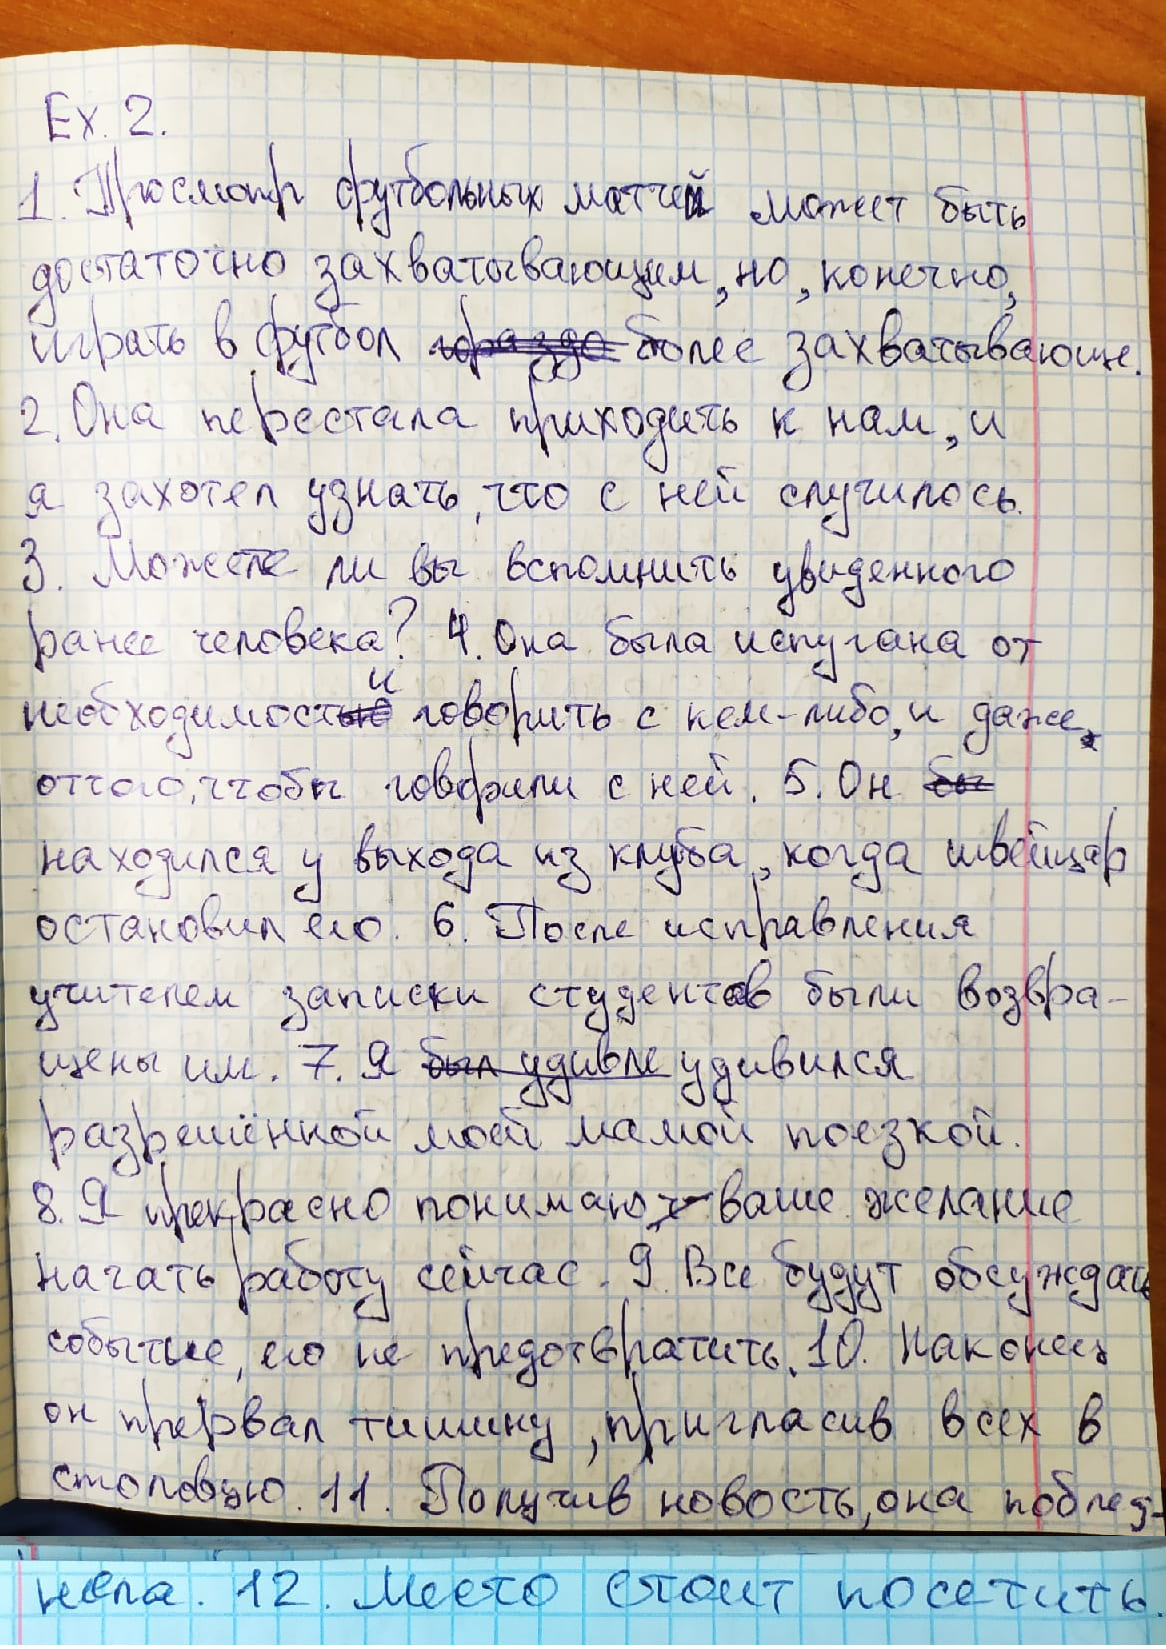 Ex. 2.
1. Просмотр футбольных матчей может быть
достаточно захватывающим, но, конечно,
играть в футбол гораздо более захватывающе.
2. Она перестала приходить к нам, и
я захотел узнать, что с ней случилось.
3. Можете ли вы вспомнить увиденного
ранее человека? 4. Она была испугана от
необходимости говорить с кем-либо, и даже,
оттого, чтобы говорили с ней. 5. Он бы
находился у выхода из клуба, когда швейцар
остановил его. 6. После исправления
учителем записки студентов были возвра-
щены им. 7. Я был удивле удивился
разрешённой моей мамой поезкой.
8. Я прекрасно понимаю, ваше желание
начать работу сейчас. 9. Все будут обсуждать
событие, его не предотвратить. 10. Наконец
он прервал тишину, пригласив всех в
столовую. 11. Получив новость, она поблед-
нела. 12. Место стоит посетить.